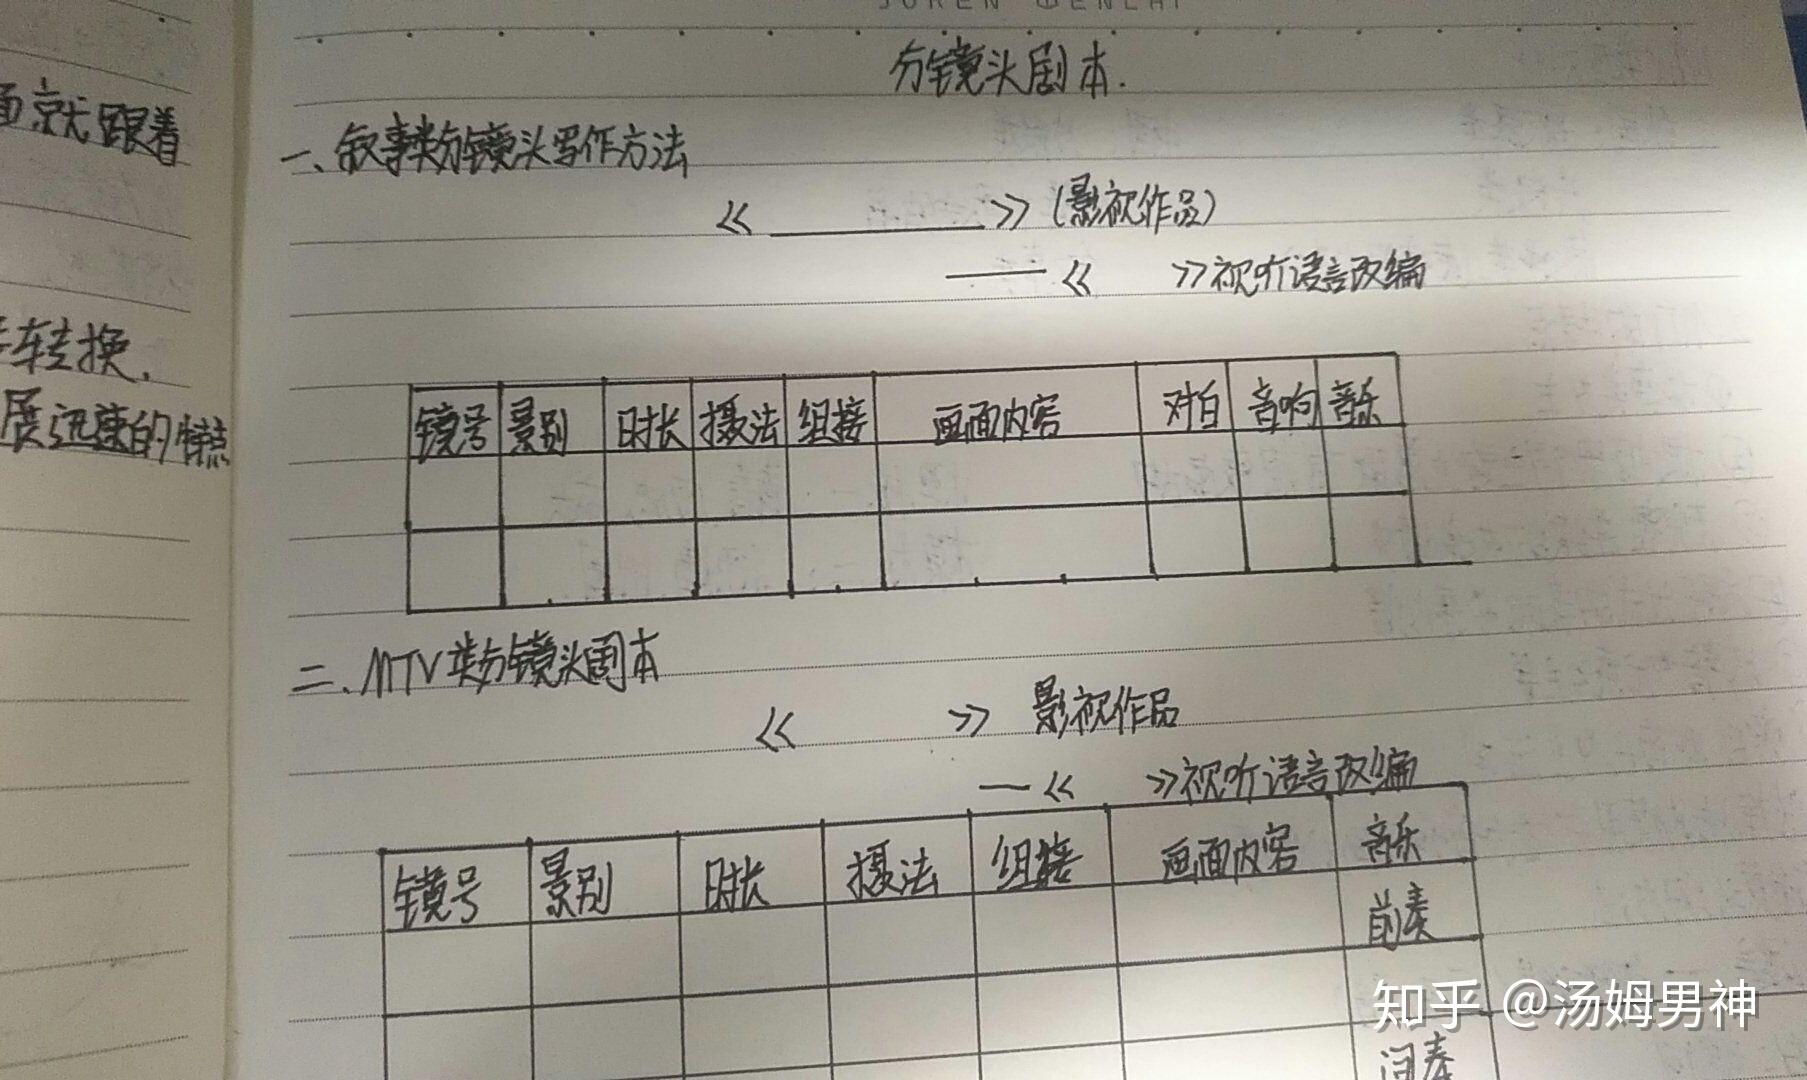 就跟着
转换.
展迅速的特点
分镜头剧本.
一、叙事类分镜头写作方法
《______》(影视作品)
——《 》视听语言改编
镜号 景别 时长 摄法 组接 画面内容 对白 音响 音乐
二、MTV类分镜头剧本
《 》 影视作品
—《 》视听语言改编
镜号 景别 时长 摄法 组接 画面内容 音乐
前奏
间奏
知乎 @汤姆男神